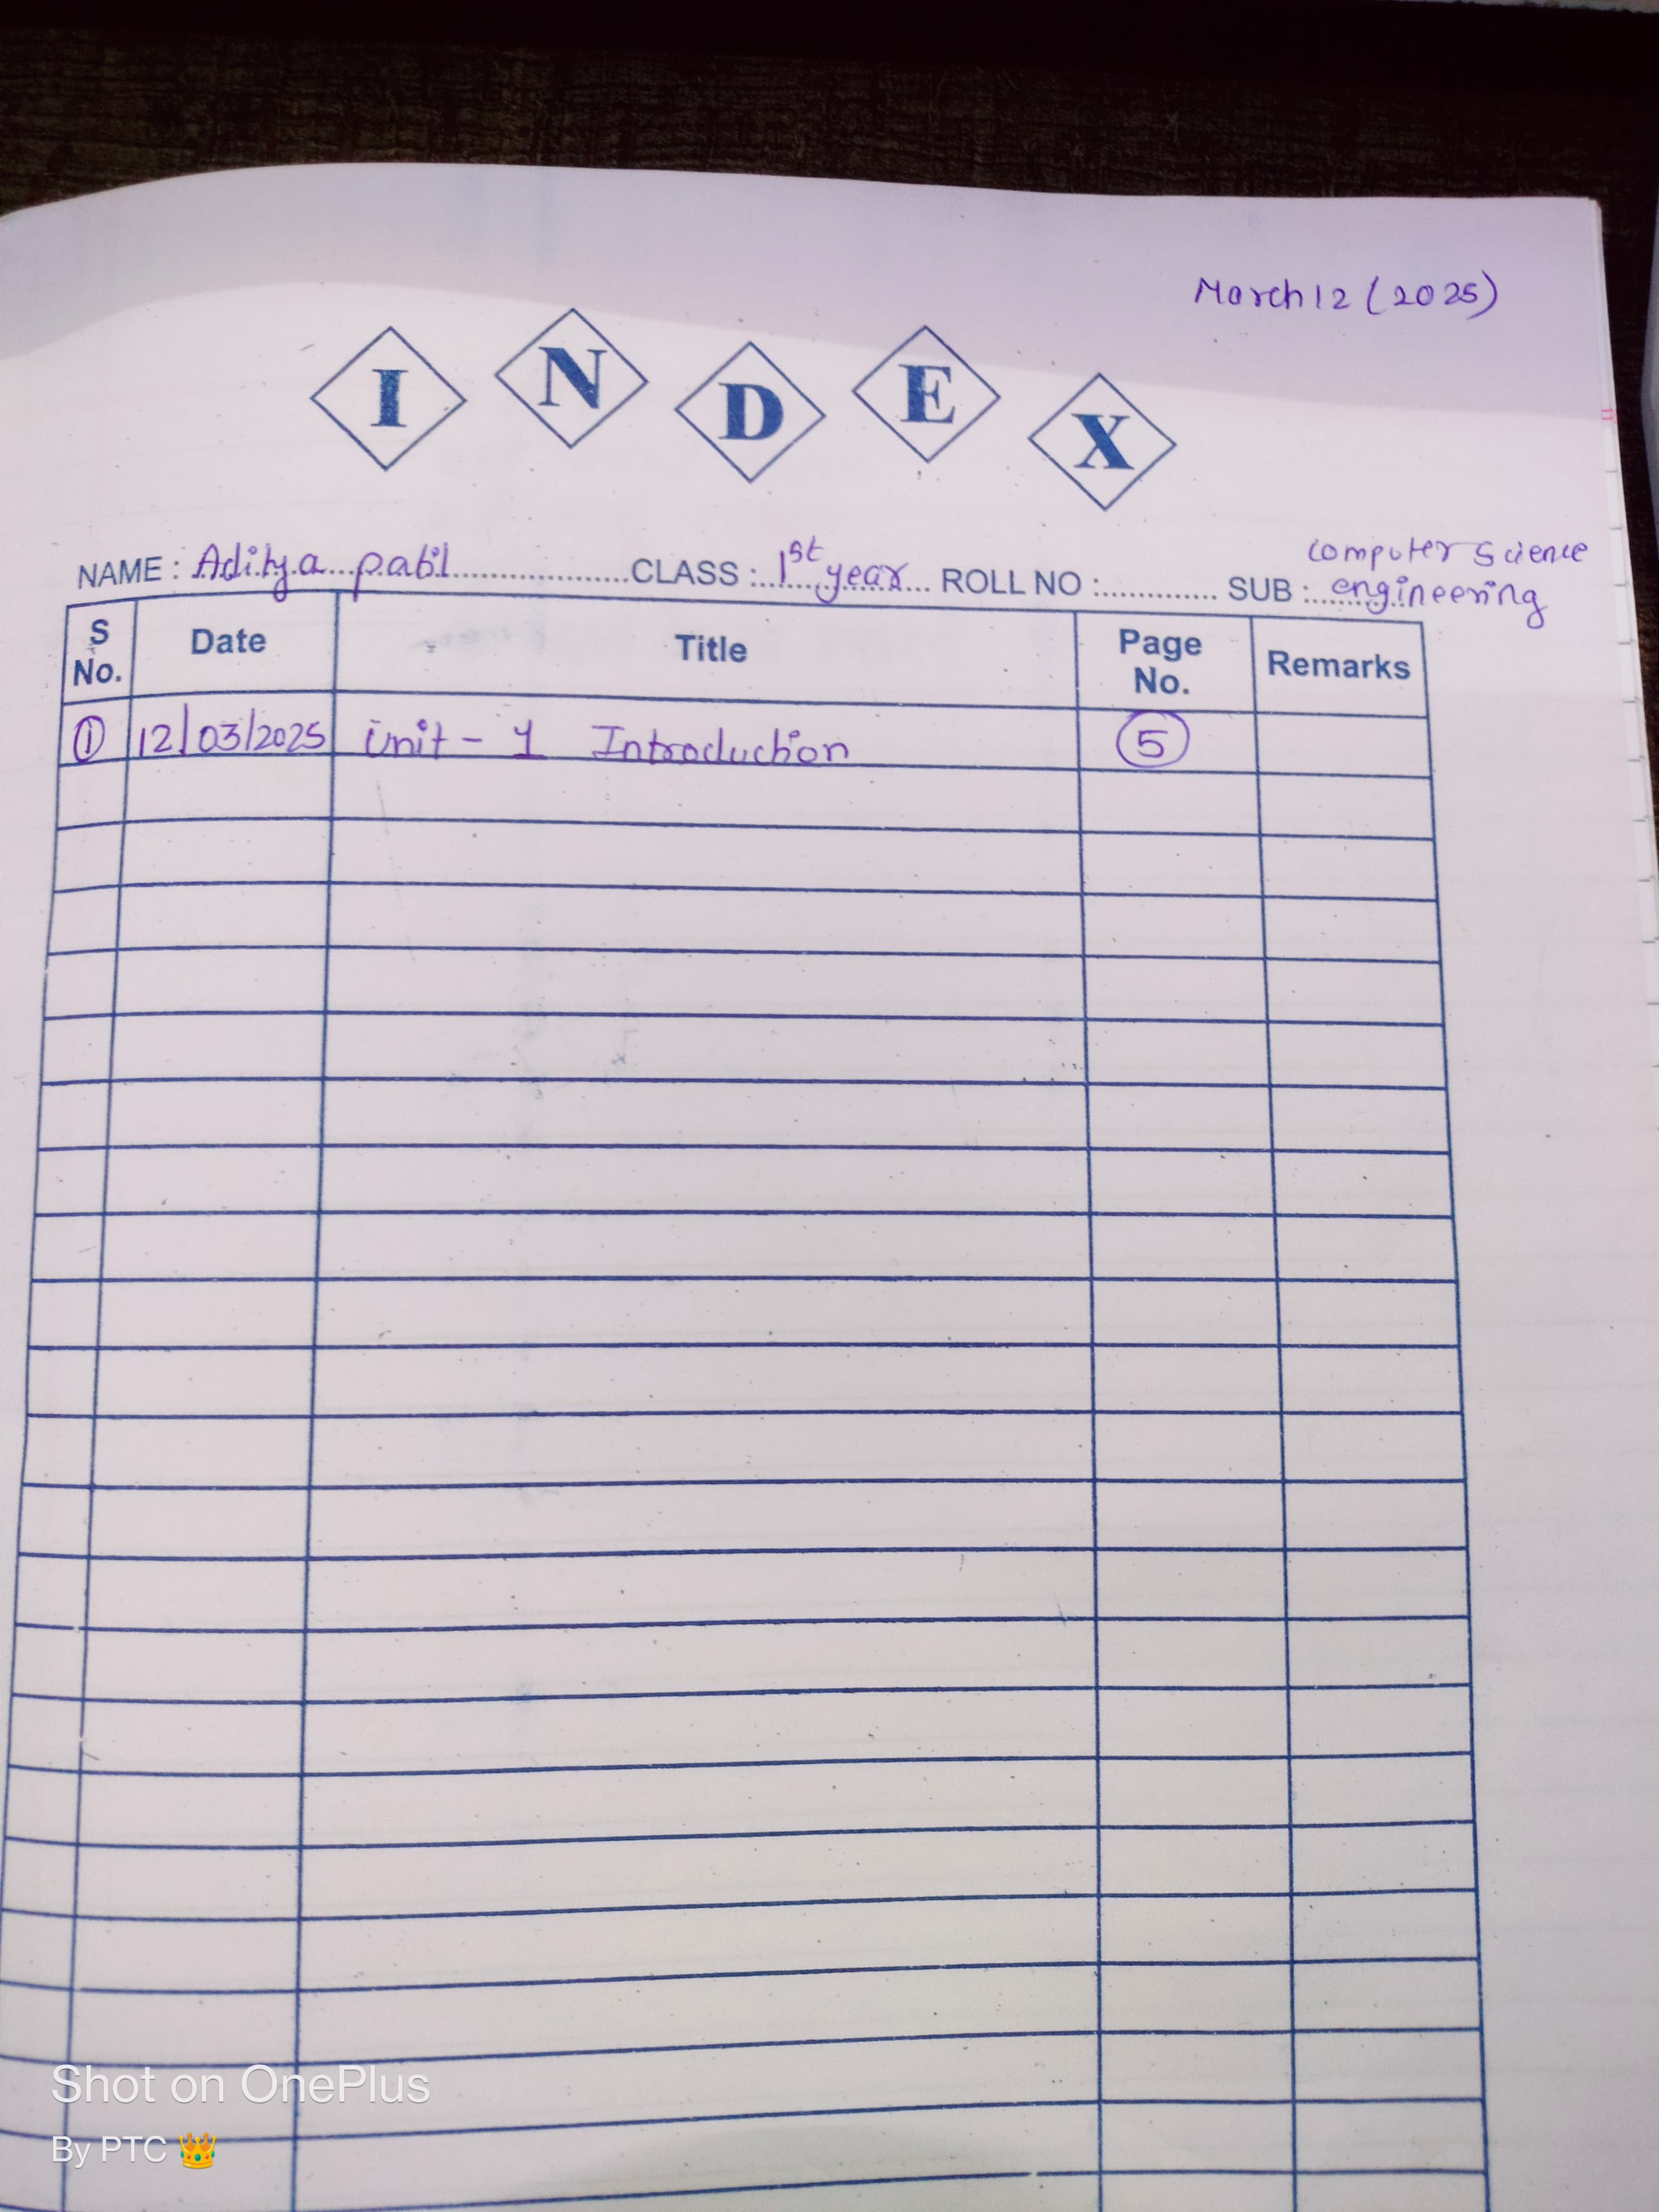 March 12 (2025)
INDEX
NAME : Aditya patil CLASS : 1st year ROLL NO : SUB : Computer Science engineering
S No. Date Title Page No. Remarks
① 12/03/2025 Unit - 1 Introduction 5
Shot on OnePlus
By PTC 👑